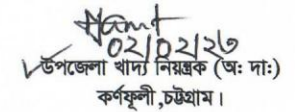 ০২/০২/২৩
উপজেলা খাদ্য নিয়ন্ত্রক (অ: দা:)
কর্ণফুলী ,চট্টগ্রাম।